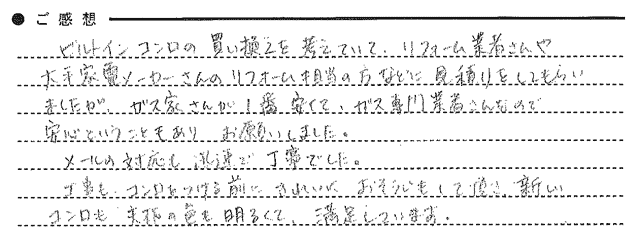 ● ご感想
ビルトインコンロの買い換えを考えていて、リフォーム業者さんや
大手家電メーカーさんのリフォーム担当の方などに見積りをしてもらい
ましたが、ガス家さんが1番安くて、ガス専門業者さんなので
安心ということもあり お願いしました。
メールの対応も迅速で丁寧でした。
工事も、コンロをつける前に きれいに おそうじもして頂き、新しい
コンロも 天板の色も明るくて、満足しています。